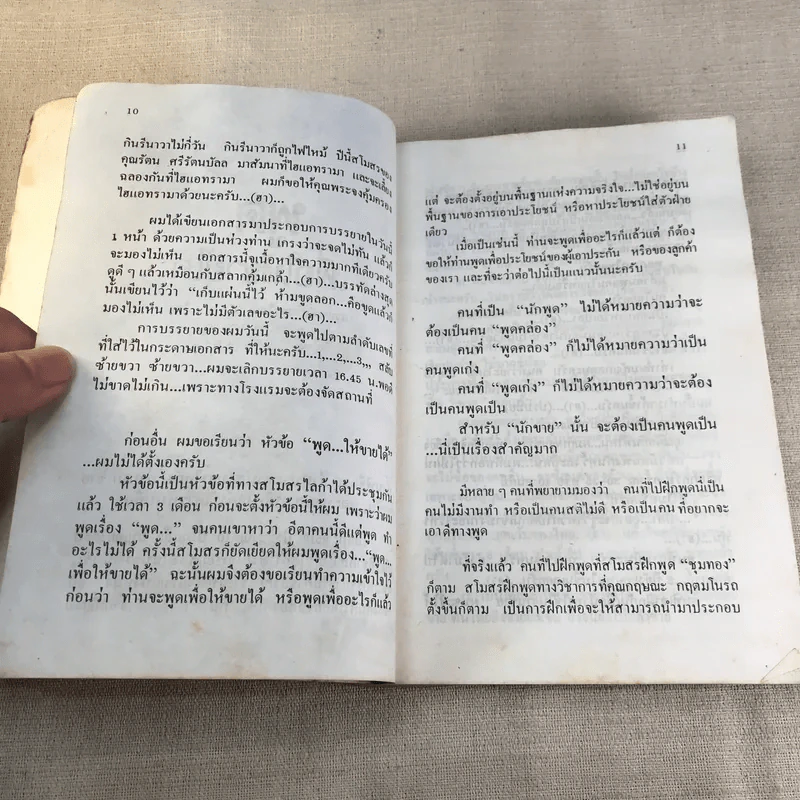 10
กินรีนาวาไม่กี่วัน กินรีนาวาก็ถูกไฟไหม้ ปีนี้สโมสรของ
คุณรัตน ศรีรัตนบัลล มาสัมนาที่ไฮแอทรามา และจะเลี้ยง
ฉลองกันที่ไฮแอทรามา ผมก็ขอให้คุณพระจงคุ้มครอง
ไฮแอทรามาด้วยนะครับ...(ฮา)...
ผมได้เขียนเอกสารมาประกอบการบรรยายในวันนี้
1 หน้า ด้วยความเป็นห่วงท่าน เกรงว่าจะจดไม่ทัน แล้วก็
จะมองไม่เห็น เอกสารนี้จุเนื้อหาใจความมากทีเดียวครับ
ดูดี ๆ แล้วเหมือนกับสลากคุ้มเกล้า...(ฮา)...บรรทัดล่างสุด
นั้นเขียนไว้ว่า “เก็บแผ่นนี้ไว้ ห้ามขูดลอก...คือขูดแล้วก็
มองไม่เห็น เพราะไม่มีตัวเลขอะไร...(ฮา)...
การบรรยายของผมวันนี้ จะพูดไปตามลำดับเลขที่
ที่ใส่ไว้ในกระดาษเอกสาร ที่ให้นะครับ...1,...2,...3,,,, สลับ
ซ้ายขวา ซ้ายขวา...ผมจะเลิกบรรยายเวลา 16.45 น.พอดี
ไม่ขาดไม่เกิน...เพราะทางโรงแรมจะต้องจัดสถานที่
ก่อนอื่น ผมขอเรียนว่า หัวข้อ “พูด...ให้ขายได้”
...ผมไม่ได้ตั้งเองครับ
หัวข้อนี้เป็นหัวข้อที่ทางสโมสรไลก้าได้ประชุมกัน
แล้ว ใช้เวลา 3 เดือน ก่อนจะตั้งหัวข้อนี้ให้ผม เพราะว่าผม
พูดเรื่อง “พูด...” จนคนเขาหาว่า อีตาคนนี้ดีแต่พูด ทำ
อะไรไม่ได้ ครั้งนี้สโมสรก็ยัดเยียดให้ผมพูดเรื่อง...“พูด...
เพื่อให้ขายได้” ฉะนั้นผมจึงต้องขอเรียนทำความเข้าใจไว้
ก่อนว่า ท่านจะพูดเพื่อให้ขายได้ หรือพูดเพื่ออะไรก็แล้ว
11
แต่ จะต้องตั้งอยู่บนพื้นฐานแห่งความจริงใจ...ไม่ใช่อยู่บน
พื้นฐานของการเอาประโยชน์ หรือหาประโยชน์ใส่ตัวฝ่าย
เดียว
เมื่อเป็นเช่นนี้ ท่านจะพูดเพื่ออะไรก็แล้วแต่ ก็ต้อง
ขอให้ท่านพูดเพื่อประโยชน์ของผู้เอาประกัน หรือของลูกค้า
ของเรา และที่จะว่าต่อไปนี้เป็นแนวนั้นนะครับ
คนที่เป็น “นักพูด” ไม่ได้หมายความว่าจะ
ต้องเป็นคน “พูดคล่อง”
คนที่ “พูดคล่อง” ก็ไม่ได้หมายความว่าเป็น
คนพูดเก่ง
คนที่ “พูดเก่ง” ก็ไม่ได้หมายความว่าจะต้อง
เป็นคนพูดเป็น
สำหรับ “นักขาย” นั้น จะต้องเป็นคนพูดเป็น
...นี่เป็นเรื่องสำคัญมาก
มีหลาย ๆ คนที่พยายามมองว่า คนที่ไปฝึกพูดนี่เป็น
คนไม่มีงานทำ หรือเป็นคนสติไม่ดี หรือเป็นคน ที่อยากจะ
เอาดีทางพูด
ที่จริงแล้ว คนที่ไปฝึกพูดที่สโมสรฝึกพูด “ชุมทอง”
ก็ตาม สโมสรฝึกพูดทางวิชาการที่คุณกฤษณะ กฤตมโนรถ
ตั้งขึ้นก็ตาม เป็นการฝึกเพื่อจะให้สามารถนำมาประกอบ